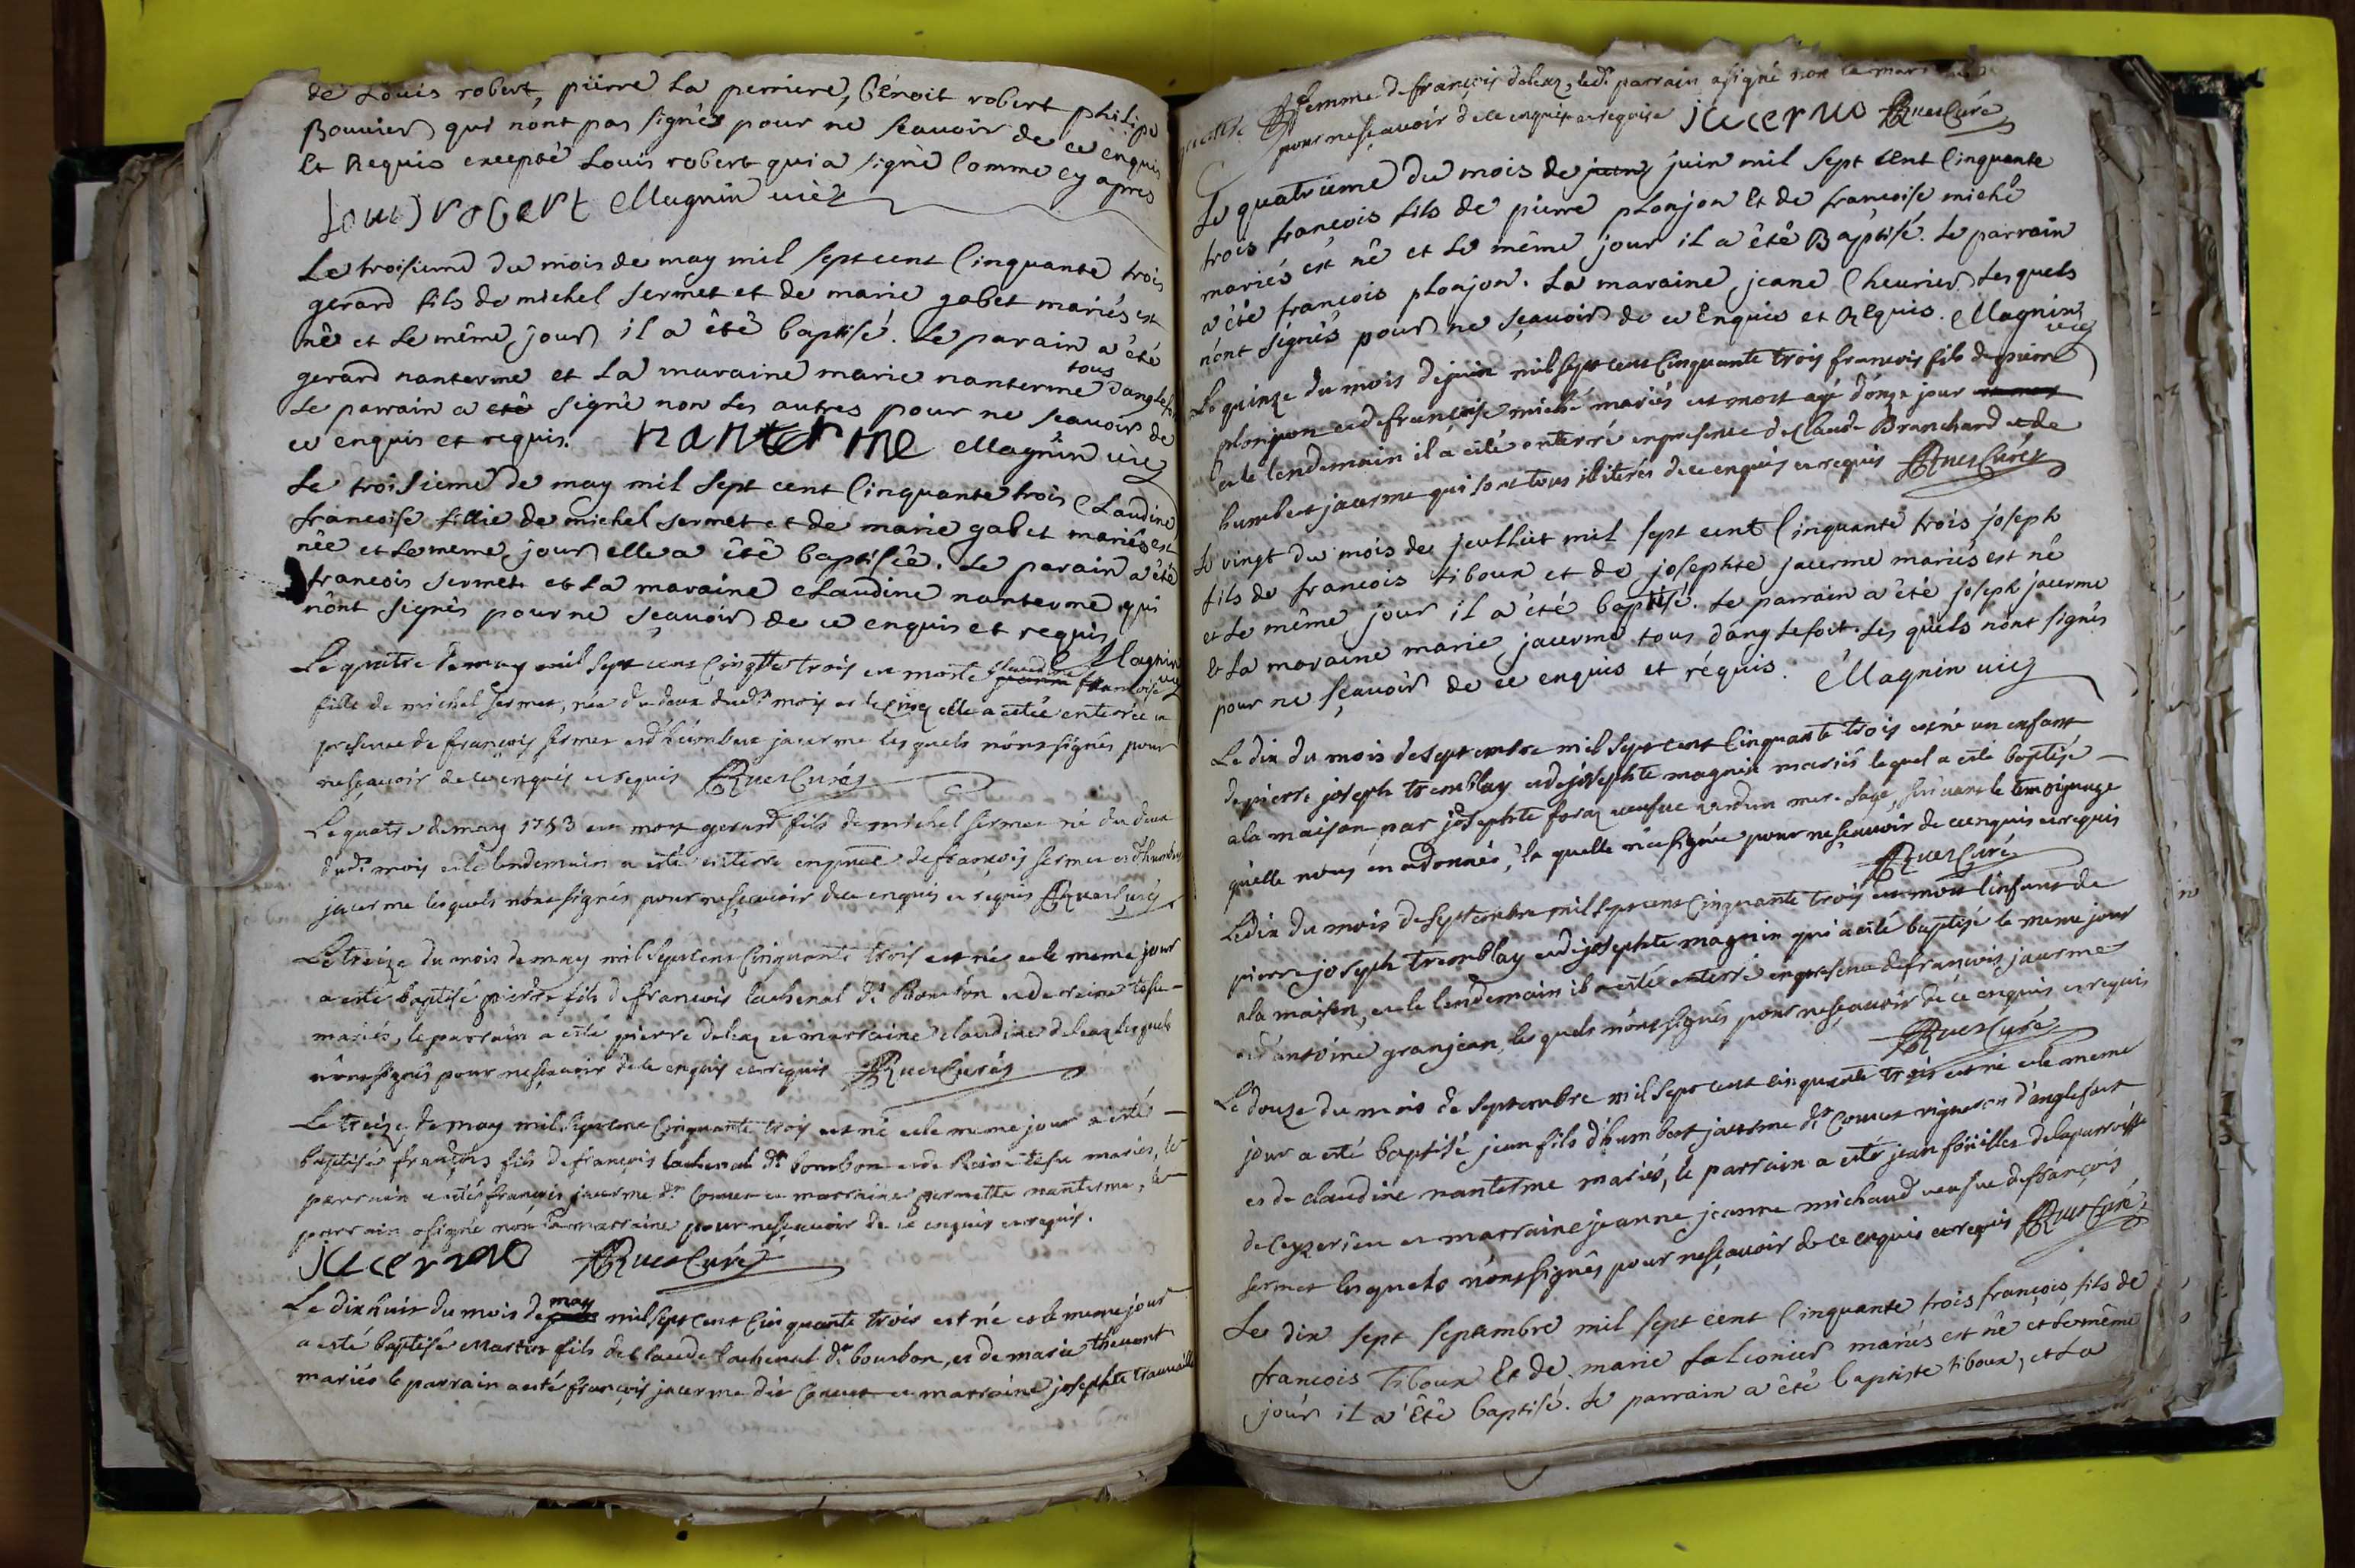 de Louis robert, pierre La perriere, bénoit robert philipe
Bouvier qui nont pas signés pour ne scavoir de ce enquis
Et Requis excepté Louis robert qui a signé Comme cy apres
Louis robert Magnin vic
Le troisieme du mois de may mil sept cent Cinquante trois
gerard fils de michel sermet et de marie gabet mariés est
né et Le même jour il a été baptisé. Le parain a été
gerard nanterme et La maraine marie nanterme tous d'anglefo
Le parrain a eté signé non Les autres pour ne scavoir de
ce enquis et requis. nanterme Magnin vic
Le troisieme de may mil sept cent Cinquante trois Claudine
francoise fillie de michel sermet et de marie gabet mariés est
née et Le meme jour elle a été baptisée. Le parain a été
francois sermet et La maraine Claudine nanterme qui
n'ont signés pour ne sçauoir de ce enquis et requis
Magnin vic
Le quatre de may mil sept cent Cinqte trois est morte Claudine francoise
fille de michel sermet, née du deux dudt mois et le cinq elle a estée enterrée en
presence de françois sermet et d'humbert jacerme les quels n'ont signés pour
nesçavoir de ce enquis et requis Ruet Curé
Le quatre de may 1753 est mort gerard fils de michel sermet né du deux
dudt mois et le lendemain a esté enterré en pnce de françois sermet et d'humbert
jacerme lesquels n'ont signés pour nesçavoir de ce enquis et requis Ruet Curé
Le treize du mois de may mil sept cent Cinquante trois est né et le meme jour
a esté baptisé pierre fils de francois lachenal dt Bourbon et de reine tesu
mariés, le parrain a esté pierre deleaz et marraine claudine deleaz lesquels
n'ont signés pour nesçavoir de ce enquis et requis Ruet Curé
Le treize de may mil sept cent Cinquante trois est né et le meme jour a esté
baptisé françois fils de françois lachenal dt bourbon et de Reine tesu mariés, le
parrain a esté françois jacerme dt Connet et marraine pernette nanterme, le
parrain a signé non la marraine pour nesçavoir de ce enquis et requis.
jacerme Ruet Curé
Le dixhuit du mois de may mil sept cent Cinquante trois est né et le meme jour
a esté baptisé Martin fils de Claude lachenal dt bourbon, et de marie thevent
mariés le parrain a esté françois jacerme dit Connet et marraine josephte
femme de françois deleaz, ledt parrain a signé non la mar
pour nesçavoir de ce enquise et requise jacerme Ruet Curé
Le quatrieme du mois de juin mil sept cent Cinquante
trois francois fils de pierre plonjon Et de francoise miché
mariés est né et Le même jour il a été Baptisé. Le parrain
a été francois plonjon. La maraine jeane Cheurier Les quels
n'ont signés pour ne sçauoir de ce Enquis et Requis. Magnin
vic
Le quinze du mois de juin mil sept cent Cinquante trois francois fils de pierre
plonjon et de françoise miché mariés est mort agé d'onze jour
et le lendemain il a esté enterré en presence de Claude Branchard et de
humbert jacerme qui sont tous illiterés de ce enquis et requis Ruet Curé
Le vingt du mois de jeulliet mil sept cent Cinquante trois joseph
fils de francois tiboux et de josephte jacerme mariés est né
et Le même jour il a été baptisé. Le parrain a été joseph jacerme
et La maraine marie jacerme tous d'anglefoit. Les quels n'ont signés
pour ne sçavoir de ce enquis et réquis. Magnin vic
Le dix du mois de septembre mil sept cent Cinquante trois est né un enfant
de pierre joseph tremblay et de josephte magnin mariés lequel a esté baptisé
a la maison par josephte foraz veufue verdun mere sage, suivant le temoignage
qu'elle nous en a donnés, la quelle n'a signée pour nesçavoir de ce enquis et requis
Ruet Curé
Ledix du mois de septembre mil sept cent Cinquante trois est mort l'enfant de
pierre joseph tremblay et de josephte magnin qui a esté baptisé le meme jour
a la maison, et le lendemain il a esté enterré en presence de francois jacerme
et d'antoine granjean, lesquels n'ont signés pour nesçavoir de ce enquis et requis
Ruet Curé
Le douze du mois de septembre mil sept cent cinquante trois est né et le meme
jour a esté baptisé jean fils d'humbert jacerme dt Connet vigneron d'anglefort
et de claudine nanterme mariés, le parrain a esté jean foüilles de la parroisse
de Ceyzerieu et marraine jeanne jeanne michaud veufue de françois
sermet lesquels n'ont signés pour nesçavoir de ce enquis et requis Ruet Curé
Le dix sept septembre mil sept cent Cinquante trois françois fils de
francois Tiboux Et de marie falconier mariés est né et Le même
jour il a Eté baptisé. Le parrain a été baptiste tiboux, et La